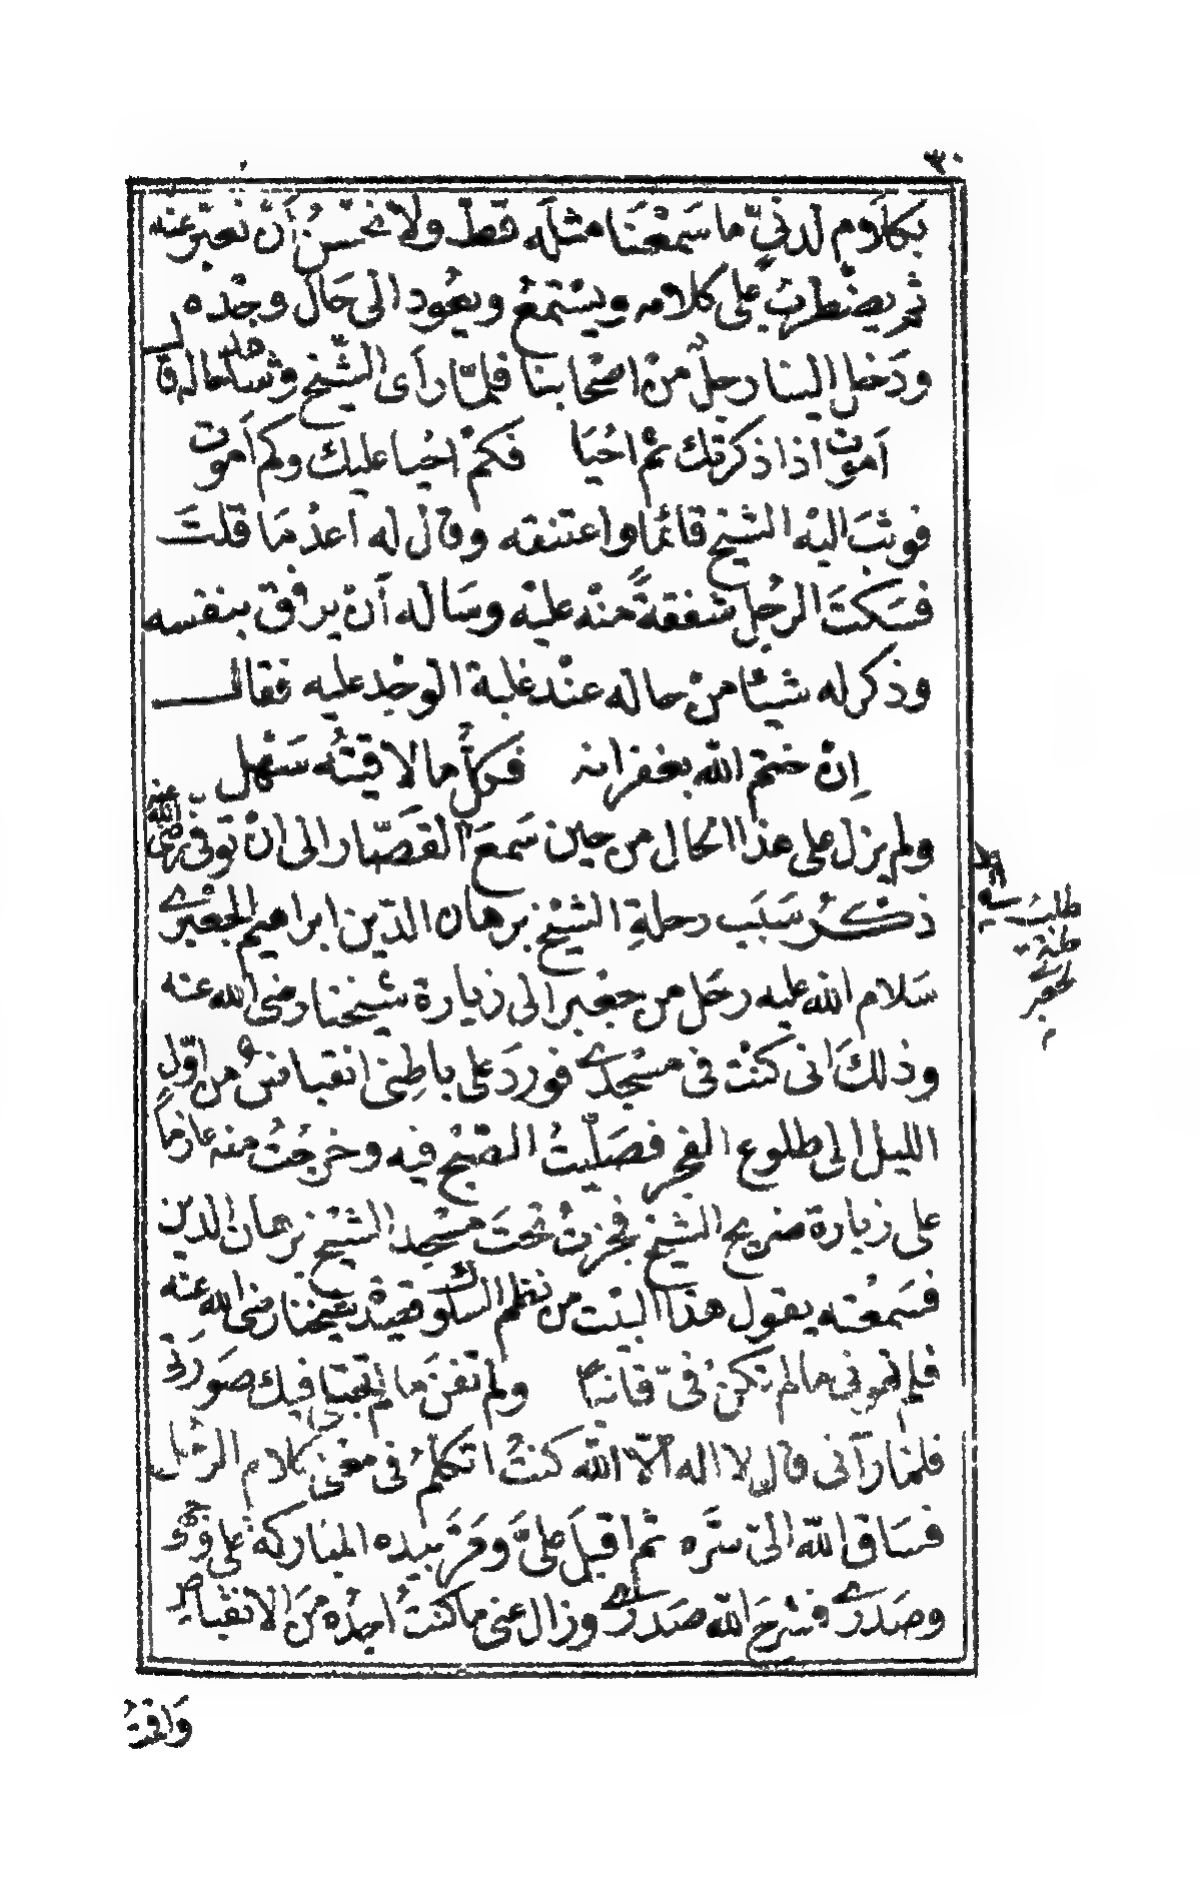 ٣٠
بكلام لدنيّ ما سمعنا مثله قطّ ولا نحسن أن نعبّر عنه
ثم يضطرب على كلامه ويستمع ويعود الى حال وجده
ودخل الينا رجل من اصحابنا فلمّا رأى الشيخ وشاهد حاله قال
أموت اذا ذكرتك ثم احيا فكم احيا عليك وكم أموت
فوثب اليه الشيخ قائما واعتنقه وقال له اعد ما قلت
فسكت الرجل شفقةً منه عليه وساله أن يرفق بنفسه
وذكر له شيئا من حاله عند غلبة الوجد عليه فقال
إن ختم الله بغفرانه فكلّ ما لاقيته سهل
ولم يزل على هذا الحال من حين سمع القصّار الى ان توفى رضى الله عنه
ذكر سبب رحلة الشيخ برهان الدين ابراهيم الجعبرى
سلام الله عليه رحل من جعبر الى زيارة شيخنا رضى الله عنه
وذلك انى كنت فى مسجدى فورد على باطنى انقباض من اوّل
الليل الى طلوع الفجر فصلّيت الصبح فيه وخرجت منه عازما
على زيارة ضريح الشيخ فجزت تحت مسجد الشيخ برهان الدين
فسمعته يقول هذا البيت من نظم السلوك قصيد شيخنا رضى الله عنه
فلم تهونى ما لم تكن فىّ فانيا ولم تفن ما لم تجتلى فيك صورتى
فلمّا رآنى قال لا اله الّا الله كنت اتكلم فى معنى كلام الرجل
فساق الله الىّ سرّه ثم اقبل علىّ ومرّ بيده المباركة على وجهى
وصدرى فشرح الله صدرى وزال عنى ما كنت اجده من الانقباض
مطلب
رحلة
الجعبرى
واقمت